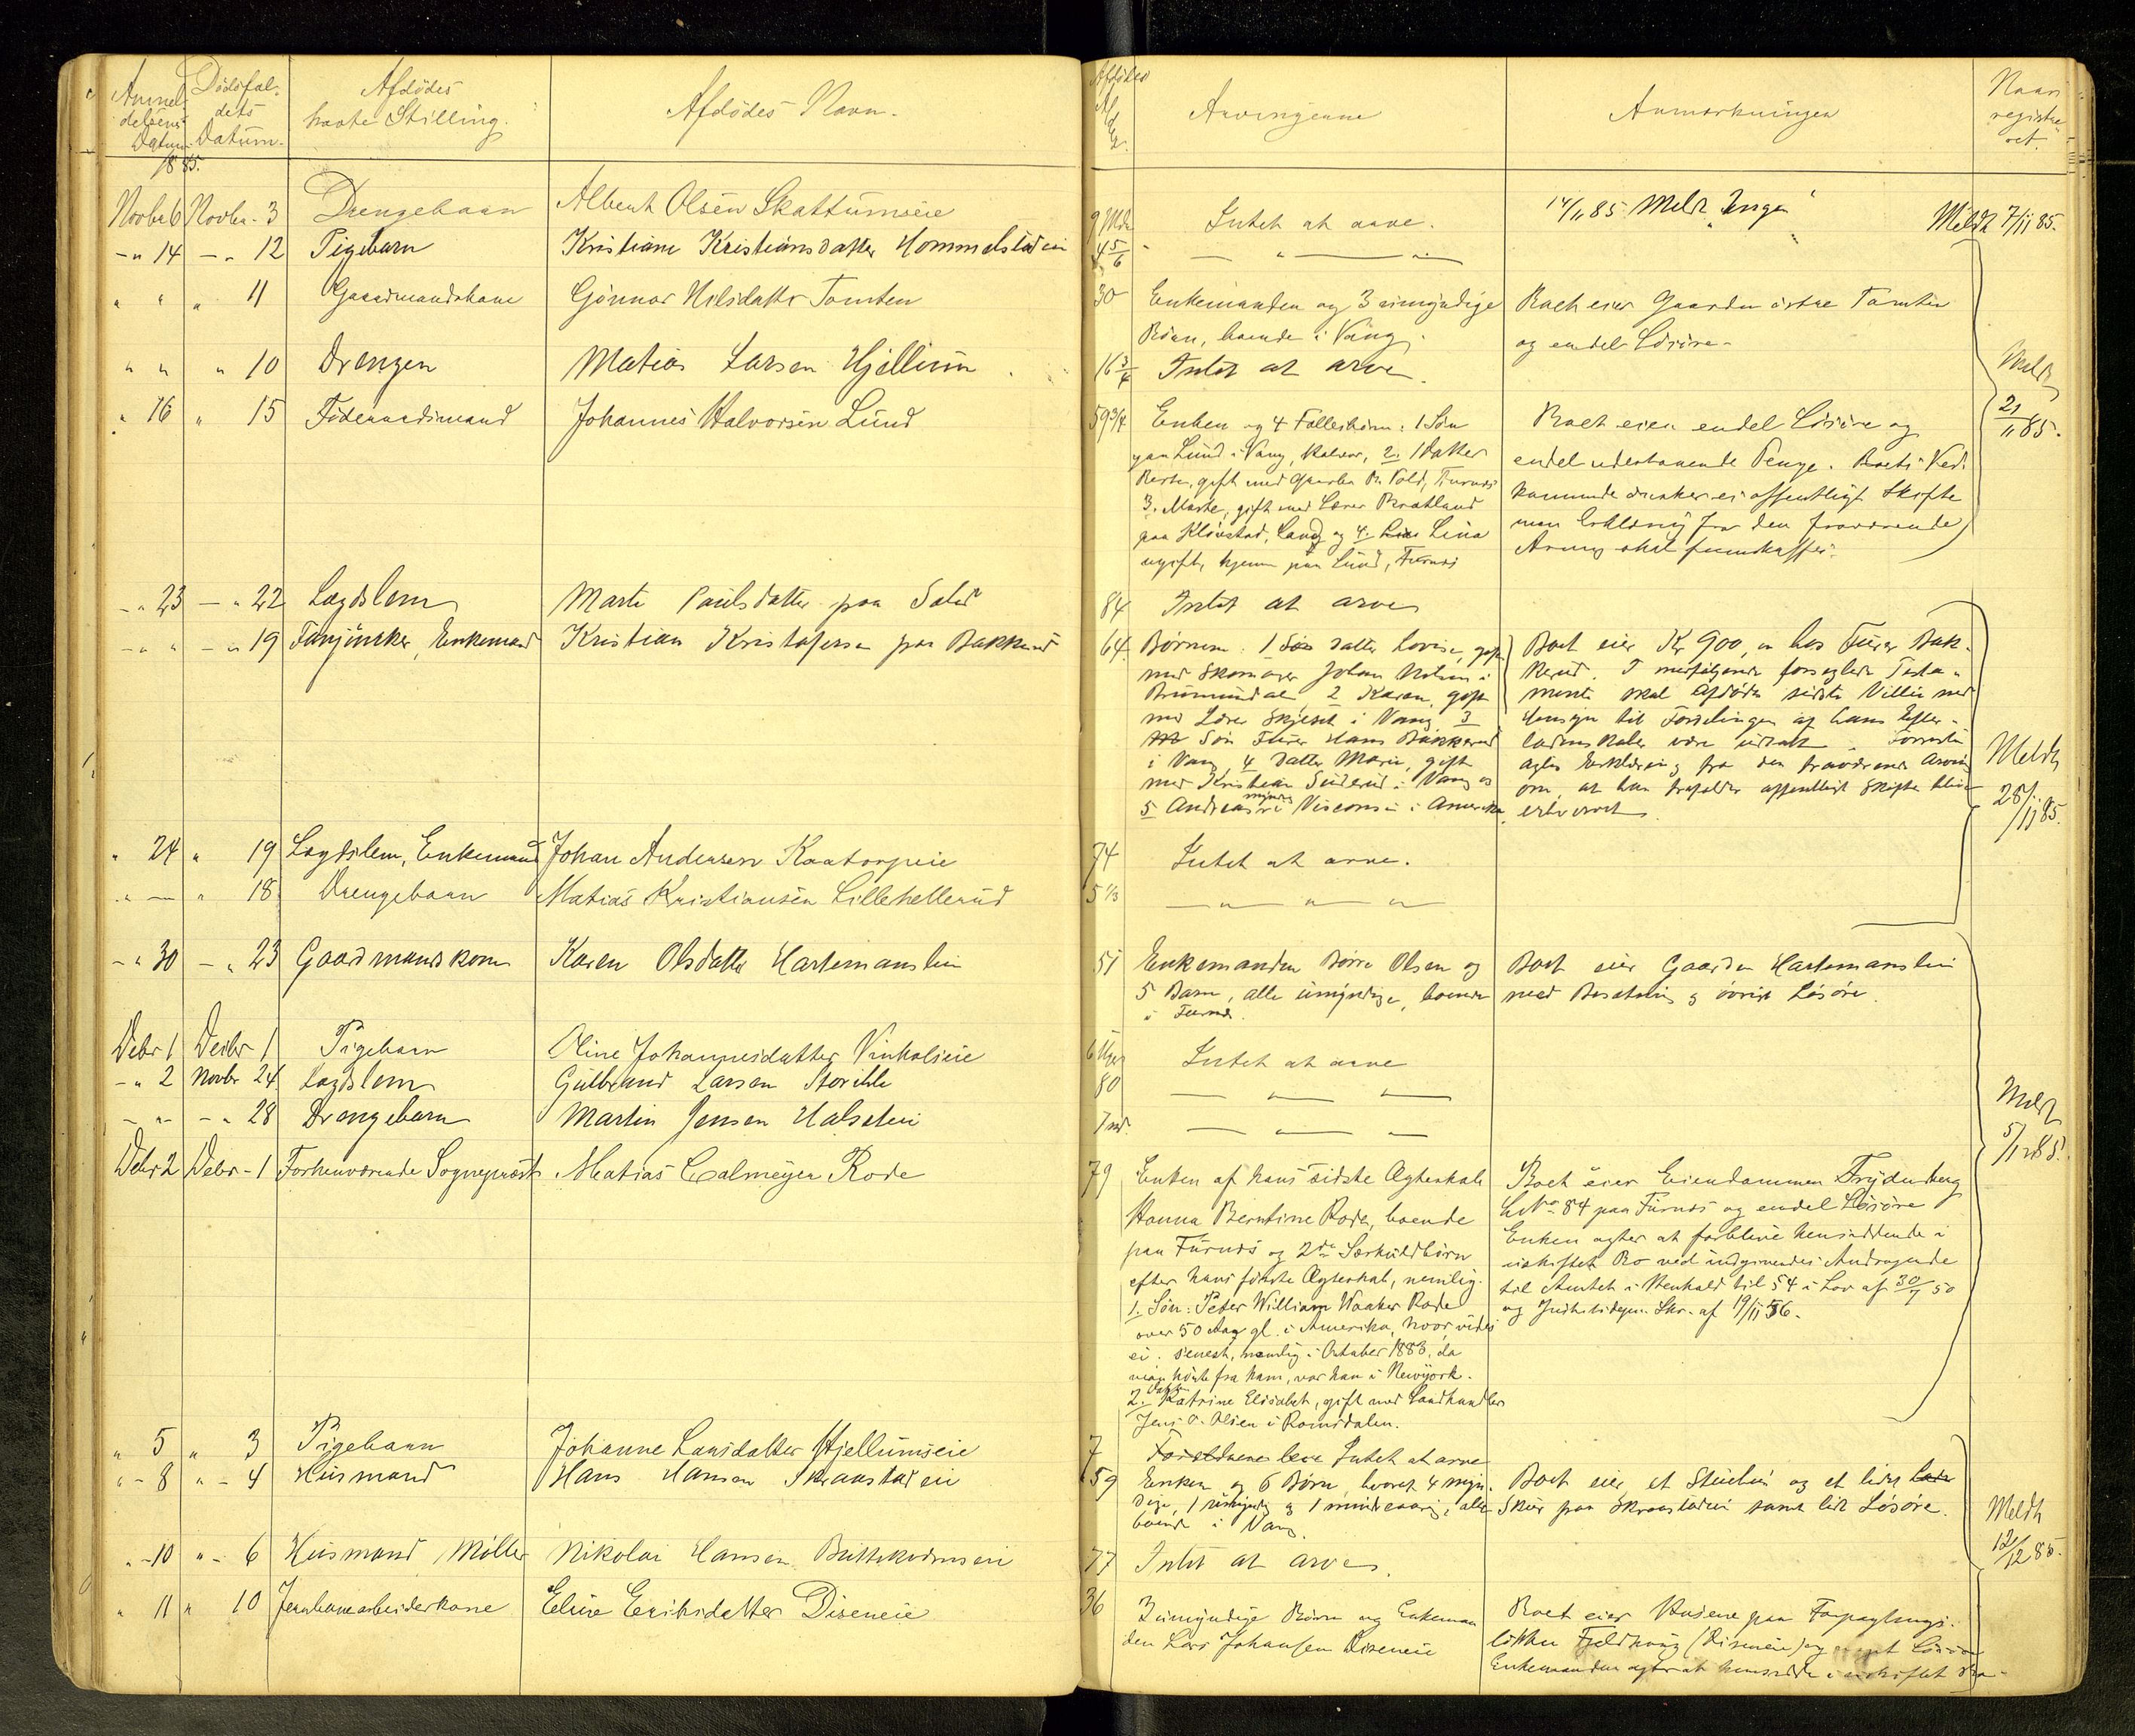 Anmel-
delsens
Datum.
Dödsfal-
dets
Datum.
Afdödes
havte Stilling.
Afdödes Navn.
Afdödes
Alder.
Arvingerne
Anmærkninger
Naar
registre-
ret.
1885.
Novbr 6 Novbr. 3 Drengebarn Albert Olsen Skattumseie 9 Mdr Intet at arve. 14/11 85 Meldt "Ingen" Meldt 7/11 85.
-"14 -"12 Pigebarn Kristiane Kristiansdatter Hommelstadeie 4 5/6 - — " — " —
" " " 11 Gaardmandskone Gunnor Nilsdatter Tomten 30 Enkemanden og 3 umyndige Boet eier Gaarden östre Tomten
Börn, boende i Vang. og endel Lösöre.
" " " 10 Drengen Matias Larsen Hjellum 16 3/4 Intet at arve. Meldt
21/11 85.
" 16 " 15 Föderaadsmand Johannes Halvorsen Lund 59 3/4 Enken og 4 Fællesbörn: 1 Sön Boet eier endel Lösöre og
paa Lund i Vang, Halvor, 2. 1 Datter endel udestaaende Penge. Boets Ved-
Berte, gift med Vold, Furnæs kommende önsker ei offentligt Skifte
3. Marte, gift med Lærer Bratland men Erklæring fra den fraværende
paa Klövstad, Vang og 4. Lina Arving skal fremskaffes.
ugift, hjemme paa Lund, Furnæs
-"23 -"22 Lægdslem Marte Paulsdatter paa 84 Intet at arve
-" " -"19 Enkemand Kristian Kristofersen paa Bakkerud 64. Börnene: 1 Datter Lovise, gift Boet eier Kr 900, " hos Furer Bak-
med Skomager Johan i kerud. I medfølgende forseglede Testa-
Brumundal, 2 Karen, gift mente skal Afdødes sidste Villie med
med Lærer Skjeset i Vang 3 Hensyn til Fordelingen af hans Efter-
Sön Furer Hans Bakkerud ladenskaber være udtalt.
i Vang, 4 Datter Marie, gift Erklæring fra den fraværende Arving
med Kristian i Vang og om, at han offentligt Skifte bliver
5 Andreas myndig i Visconsin i Amerika. erhvervet.
Meldt
28/11 85.
" 24 " 19 Lægdslem, Enkemand Johan Andersen Kaatorpeie 74 Intet at arve.
" — " 18 Drengebarn Matias Kristiansen Lillehellerud 5 1/3 — " — " — " —
-"30 -"23 Gaardmandskone Karen Olsdatter Hartemanslien 51 Enkemanden Börre Olsen og Boet eier Gaarden Hartemanslien
5 Barn, alle umyndige, boende med Besætning og övrigt Lösöre.
i Furnæs.
Debr 1 Decbr 1 Pigebarn Oline Johannesdatter Vinkelseie 6 Uger Intet at arve
-"2 Novbr 24 Lægdslem Gulbrand Larsen Storihle 80 — " — " —
-" " -"28 Drengebarn Martin Jensen Halseteie 7 md. — " — " —
Meldt
5/12 85.
Debr 2 Debr - 1 Forhenværende Sogneprest Matias Calmeyer Rode 79 Enken af hans sidste Ægteskab Boet eier Eiendommen Frydenberg
Hanna Berntine Rode, boende L No 84 paa Furnæs og endel Lösöre
paa Furnæs og 2de Særkuldbörn Enken agter at forblive hensiddende i
efter hans förste Ægteskab, nemlig. uskiftet Bo ved indgivendes Andragende
1. Sön: Peter William Waaker Rode til Amtet i Henhold til § 4 i Lov af 30/7 50
over 50 Aar gl. i Amerika, hvor, vides og Justitsdepm. Skr. af 19/11 56.
ei. Senest, nemlig i Oktober 1883, da
man hörte fra ham, var han i Newyork.
2. Datter Katrine Elisabet, gift med Landhandler
Jens O. Olsen i Romsdalen.
" 5 " 3 Pigebarn Johanne Larsdatter Hjellumseie 7 Forældrene leve Intet at arve
" - 8 " - 4 Husmand Hans Hansen Skraastadeie 59 Enken og 6 Börn, hvoraf 4 myn- Boet eier et Stuehus og et lidet
dige, 1 umyndig og 1 mindreaarig, alle Skur paa Skraastadeie samt lidt Lösöre.
boende i Vang.
Meldt
12/12 85.
" -10 " - 6 Husmand Möller Nikolai Hansen 77 Intet at arve.
" 11 " 10 Jernbanearbeiderkone Eline Eriksdatter Diseneie 36 3 umyndige Börn og Enkeman- Boet eier Husene paa Forpagtnings-
den Lars Johansen Diseneie lökken Fjeldhaug (Diseneie) og Lösöre
Enkemanden agter at hensidde i uskiftet Bo.